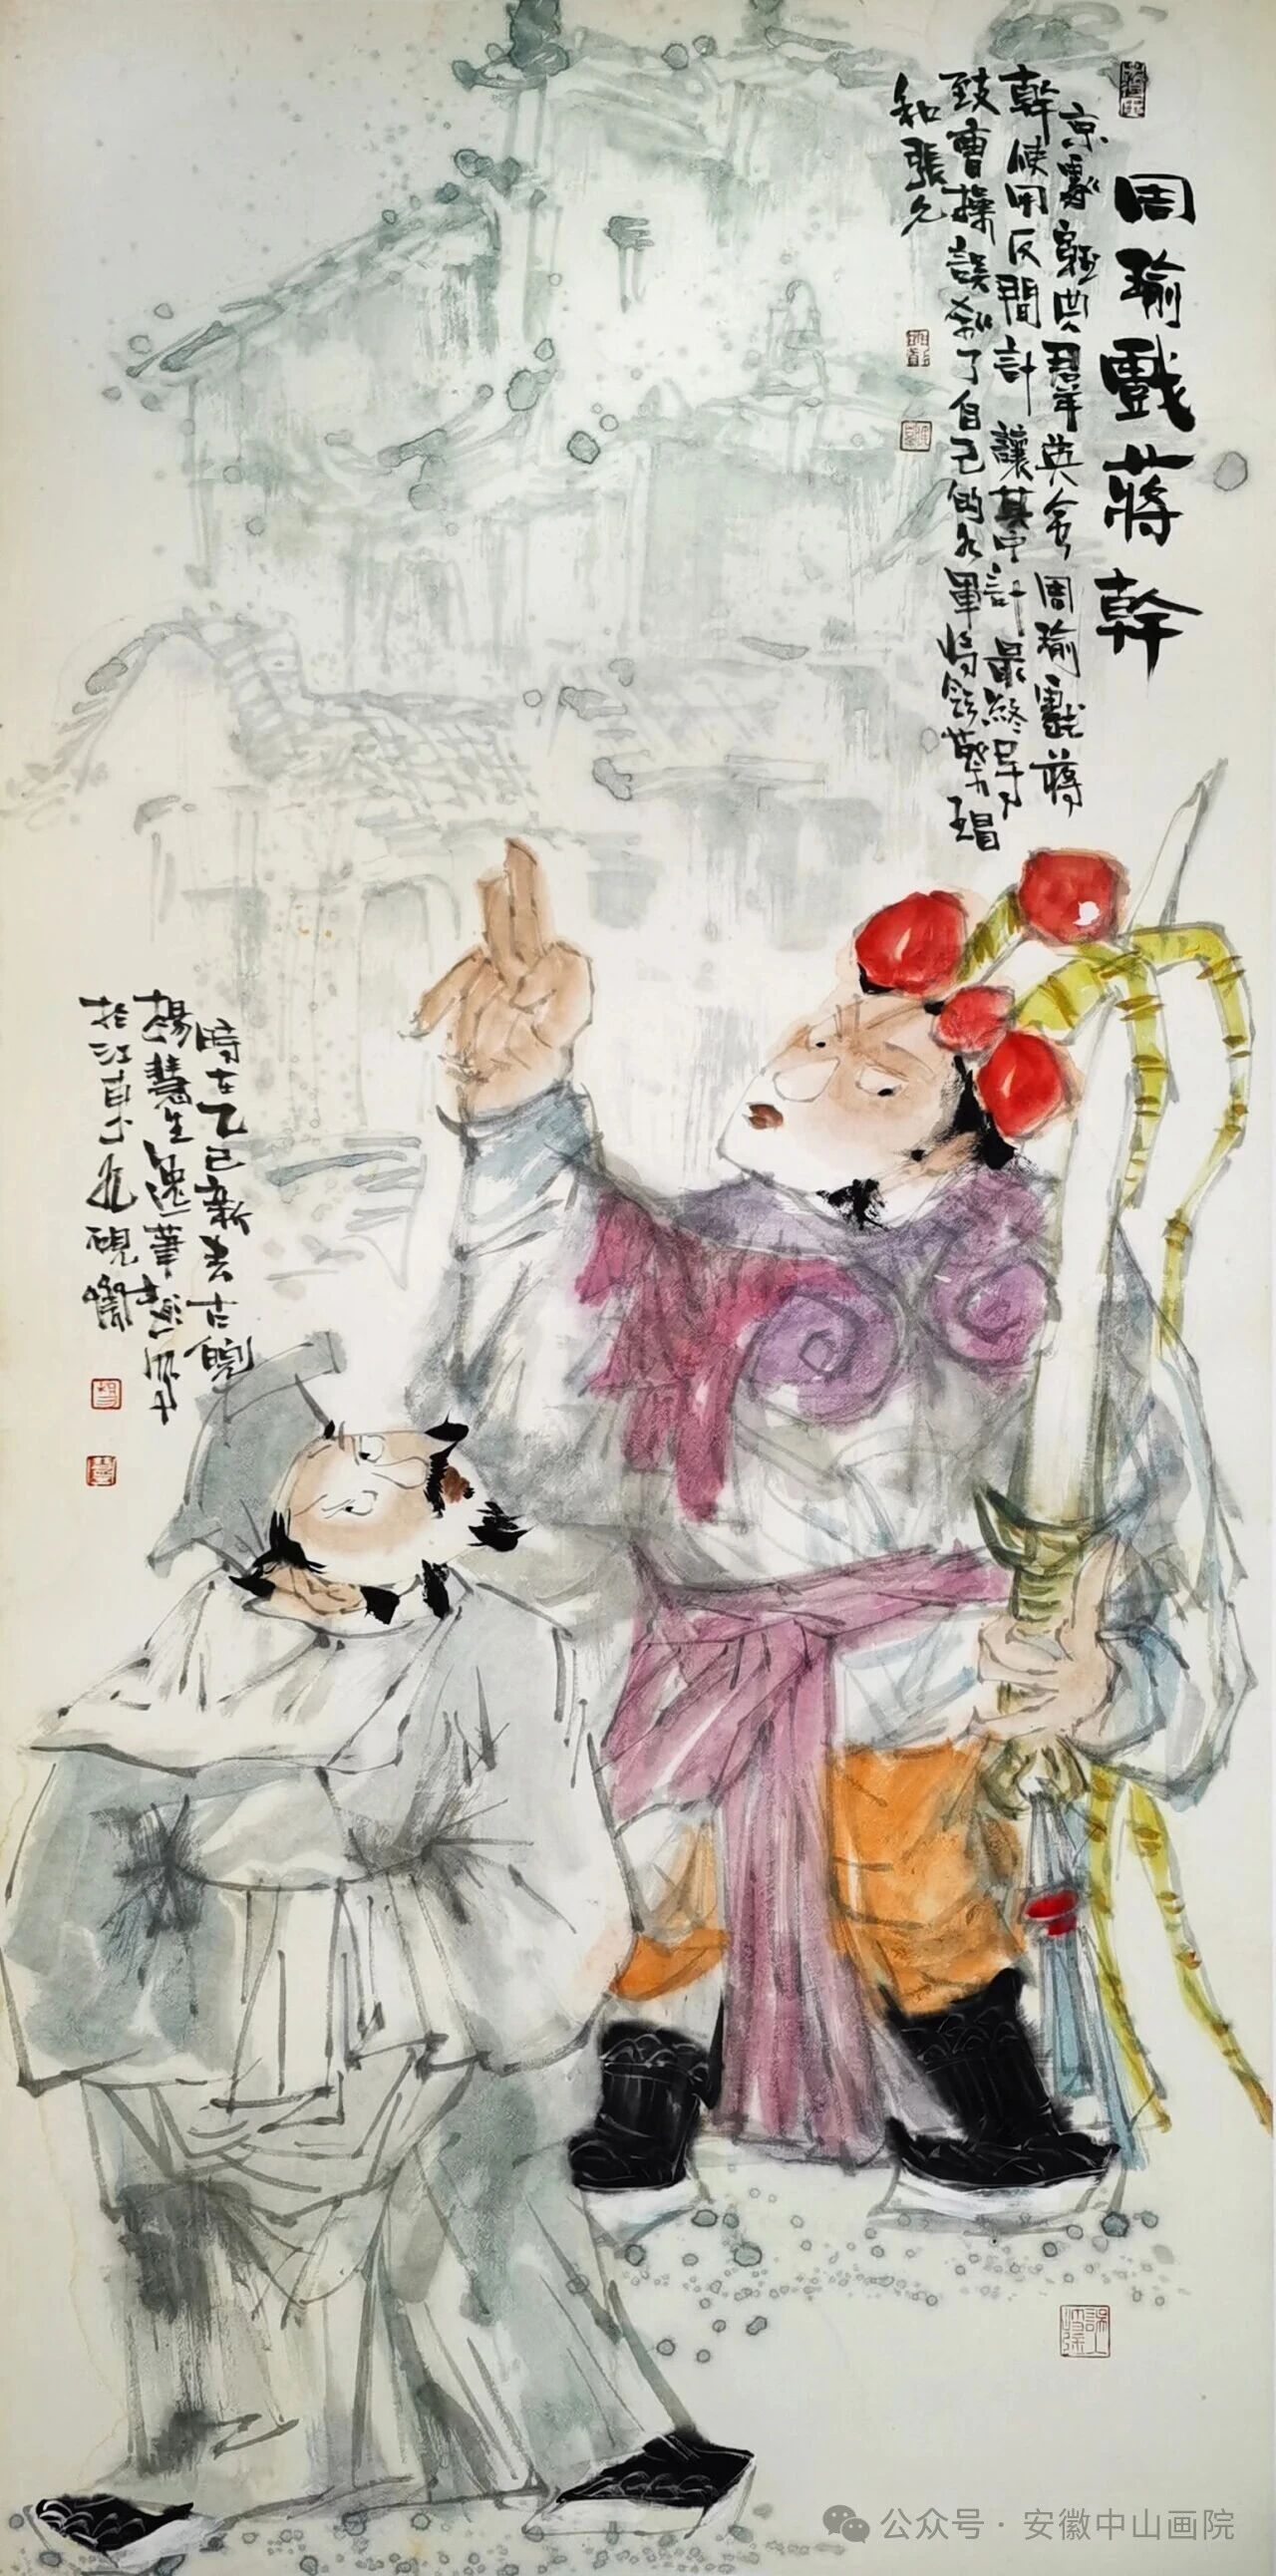 周瑜戲蔣幹
京劇經典群英會周瑜戲蔣
幹使用反間計讓其中計最終導
致曹操誤殺了自己的水軍將領蔡瑁
和張允
時在乙巳新春古皖
楊慧生逸筆
於江東九硯
公众号 · 安徽中山画院